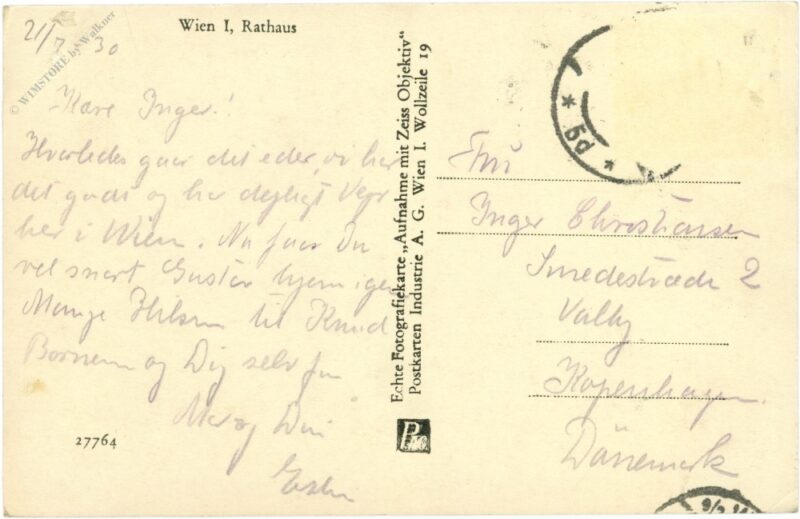 21/7 30
Wien I, Rathaus
© WIMSTORE by Walkner
Kære Inger!
Hvorledes gaar det eder, vi har
det godt og har dejligt Vejr
her i Wien. Nu faar Du
vel snart Gustav hjem igen
Mange Hilsner til Knud
Børnene og Dig selv fra
Mor og Din
27764
Echte Fotografiekarte „Aufnahme mit Zeiss Objektiv“
Postkarten Industrie A. G. Wien I. Wollzeile 19
* 5d *
Fru
Inger Christiansen
Smedestræde 2
Valby
Kopenhagen.
Dänemark